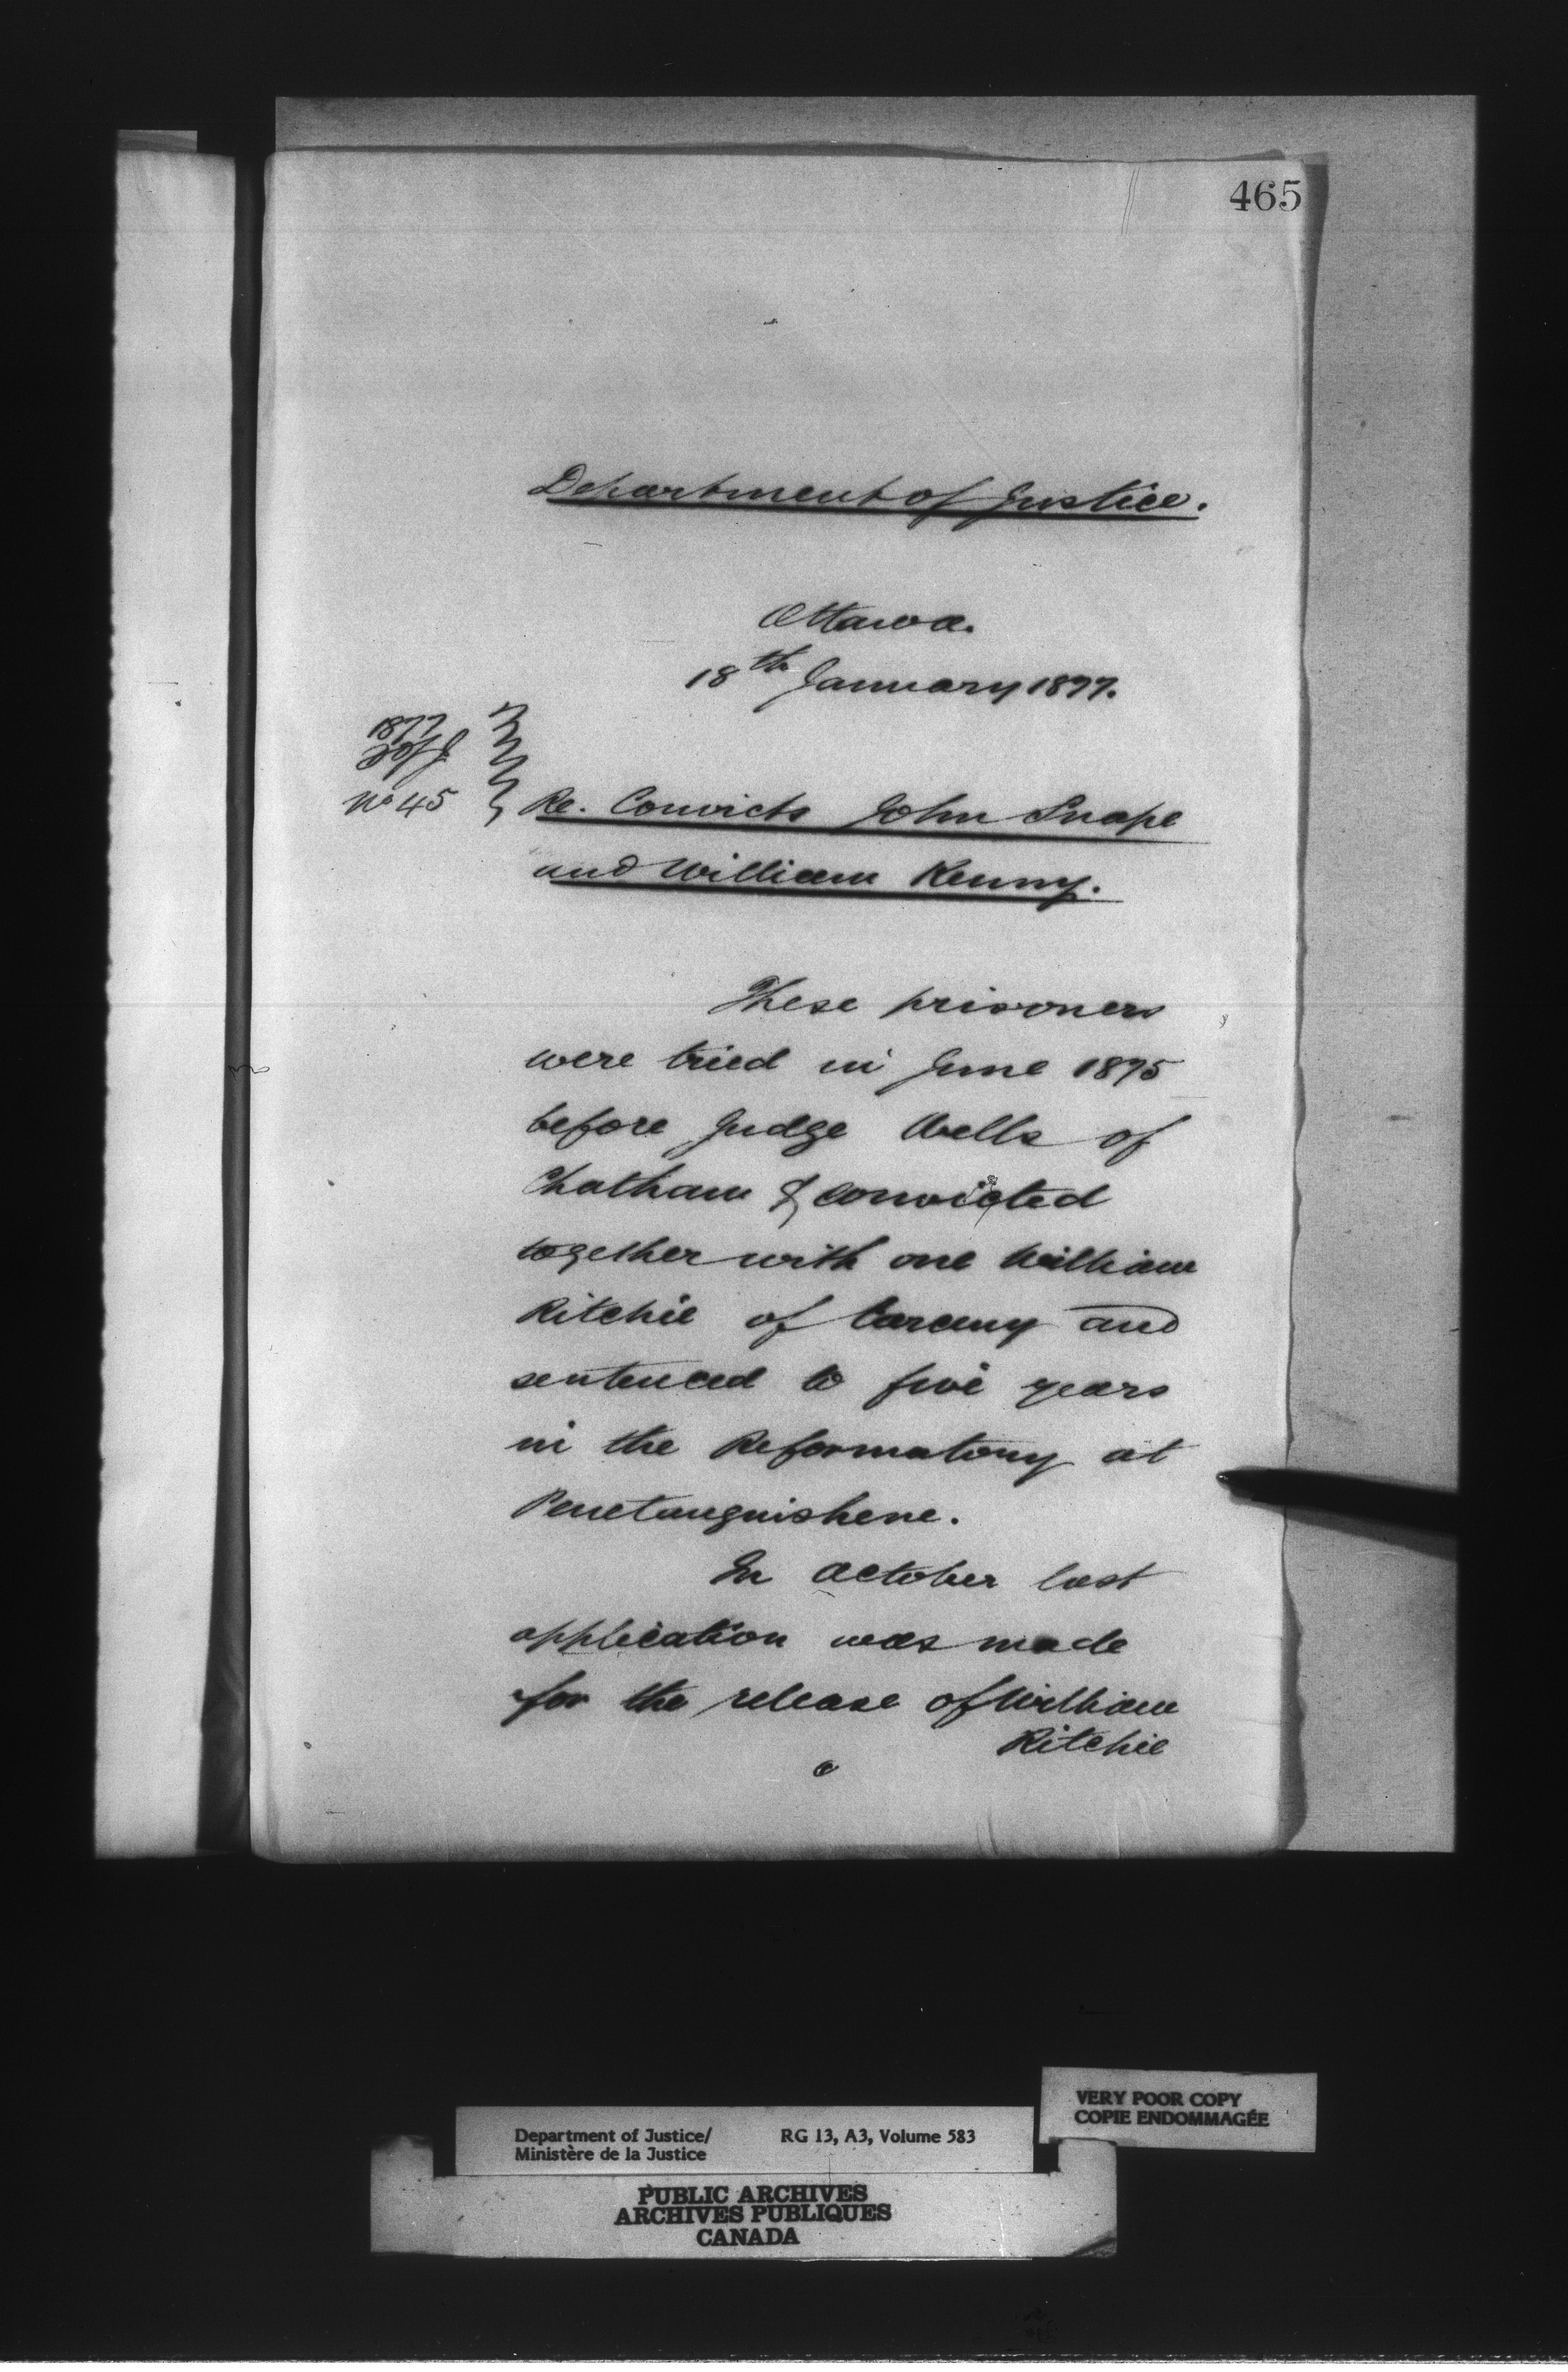 465
Department of Justice.
Ottawa.
18th January 1877.
1877
D of J.
No 45
Re. Convicts John Snape
and William Kenny.
These prisoners
were tried in June 1875
before Judge Wells of
Chatham & convicted
together with one William
Ritchie of larceny and
sentenced to five years
in the Reformatory at
Penetanguishene.
In October last
application was made
for the release of William
Ritchie
VERY POOR COPY
COPIE ENDOMMAGÉE
Department of Justice/ RG 13, A3, Volume 583
Ministère de la Justice
PUBLIC ARCHIVES
ARCHIVES PUBLIQUES
CANADA